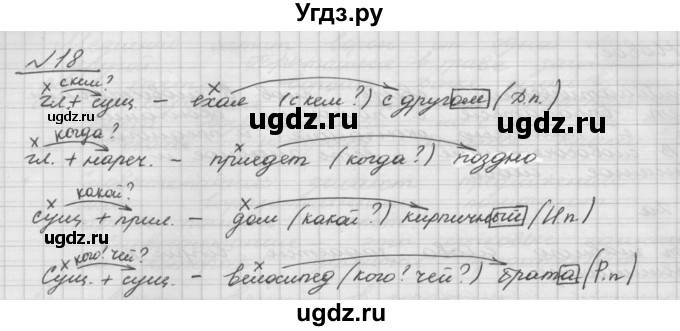 Угдз.ру
№18
с кем?
гл. + сущ – ехал (с кем?) с другом (Д.п.)
когда?
гл. + нареч. – приедет (когда?) поздно
какой?
сущ + прил. – дом (какой?) кирпичный (И.п)
кого? чей?
Сущ. + сущ. – велосипед (кого? чей?) брата (Р.п)
ugdz.ru
ugdz.ru
ugdz.ru
ugdz.ru
ugdz.ru
ugdz.ru
ugdz.ru
ugdz.ru